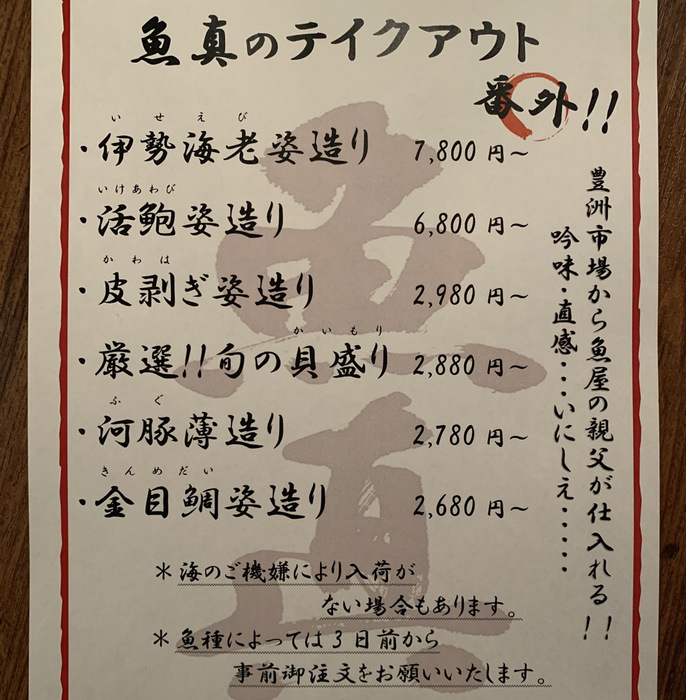 魚真のテイクアウト
番外!!
いせえび
・伊勢海老姿造り 7,800円～
いけあわび
・活鮑姿造り 6,800円～
かわは
・皮剥ぎ姿造り 2,980円～
かいもり
・厳選!!旬の貝盛り 2,880円～
ふぐ
・河豚薄造り 2,780円～
きんめだい
・金目鯛姿造り 2,680円～
豊洲市場から魚屋の親父が仕入れる!!
吟味・直感・・・いにしえ・・・・・
＊海のご機嫌により入荷が
ない場合もあります。
＊魚種によっては3日前から
事前御注文をお願いいたします。
魚真